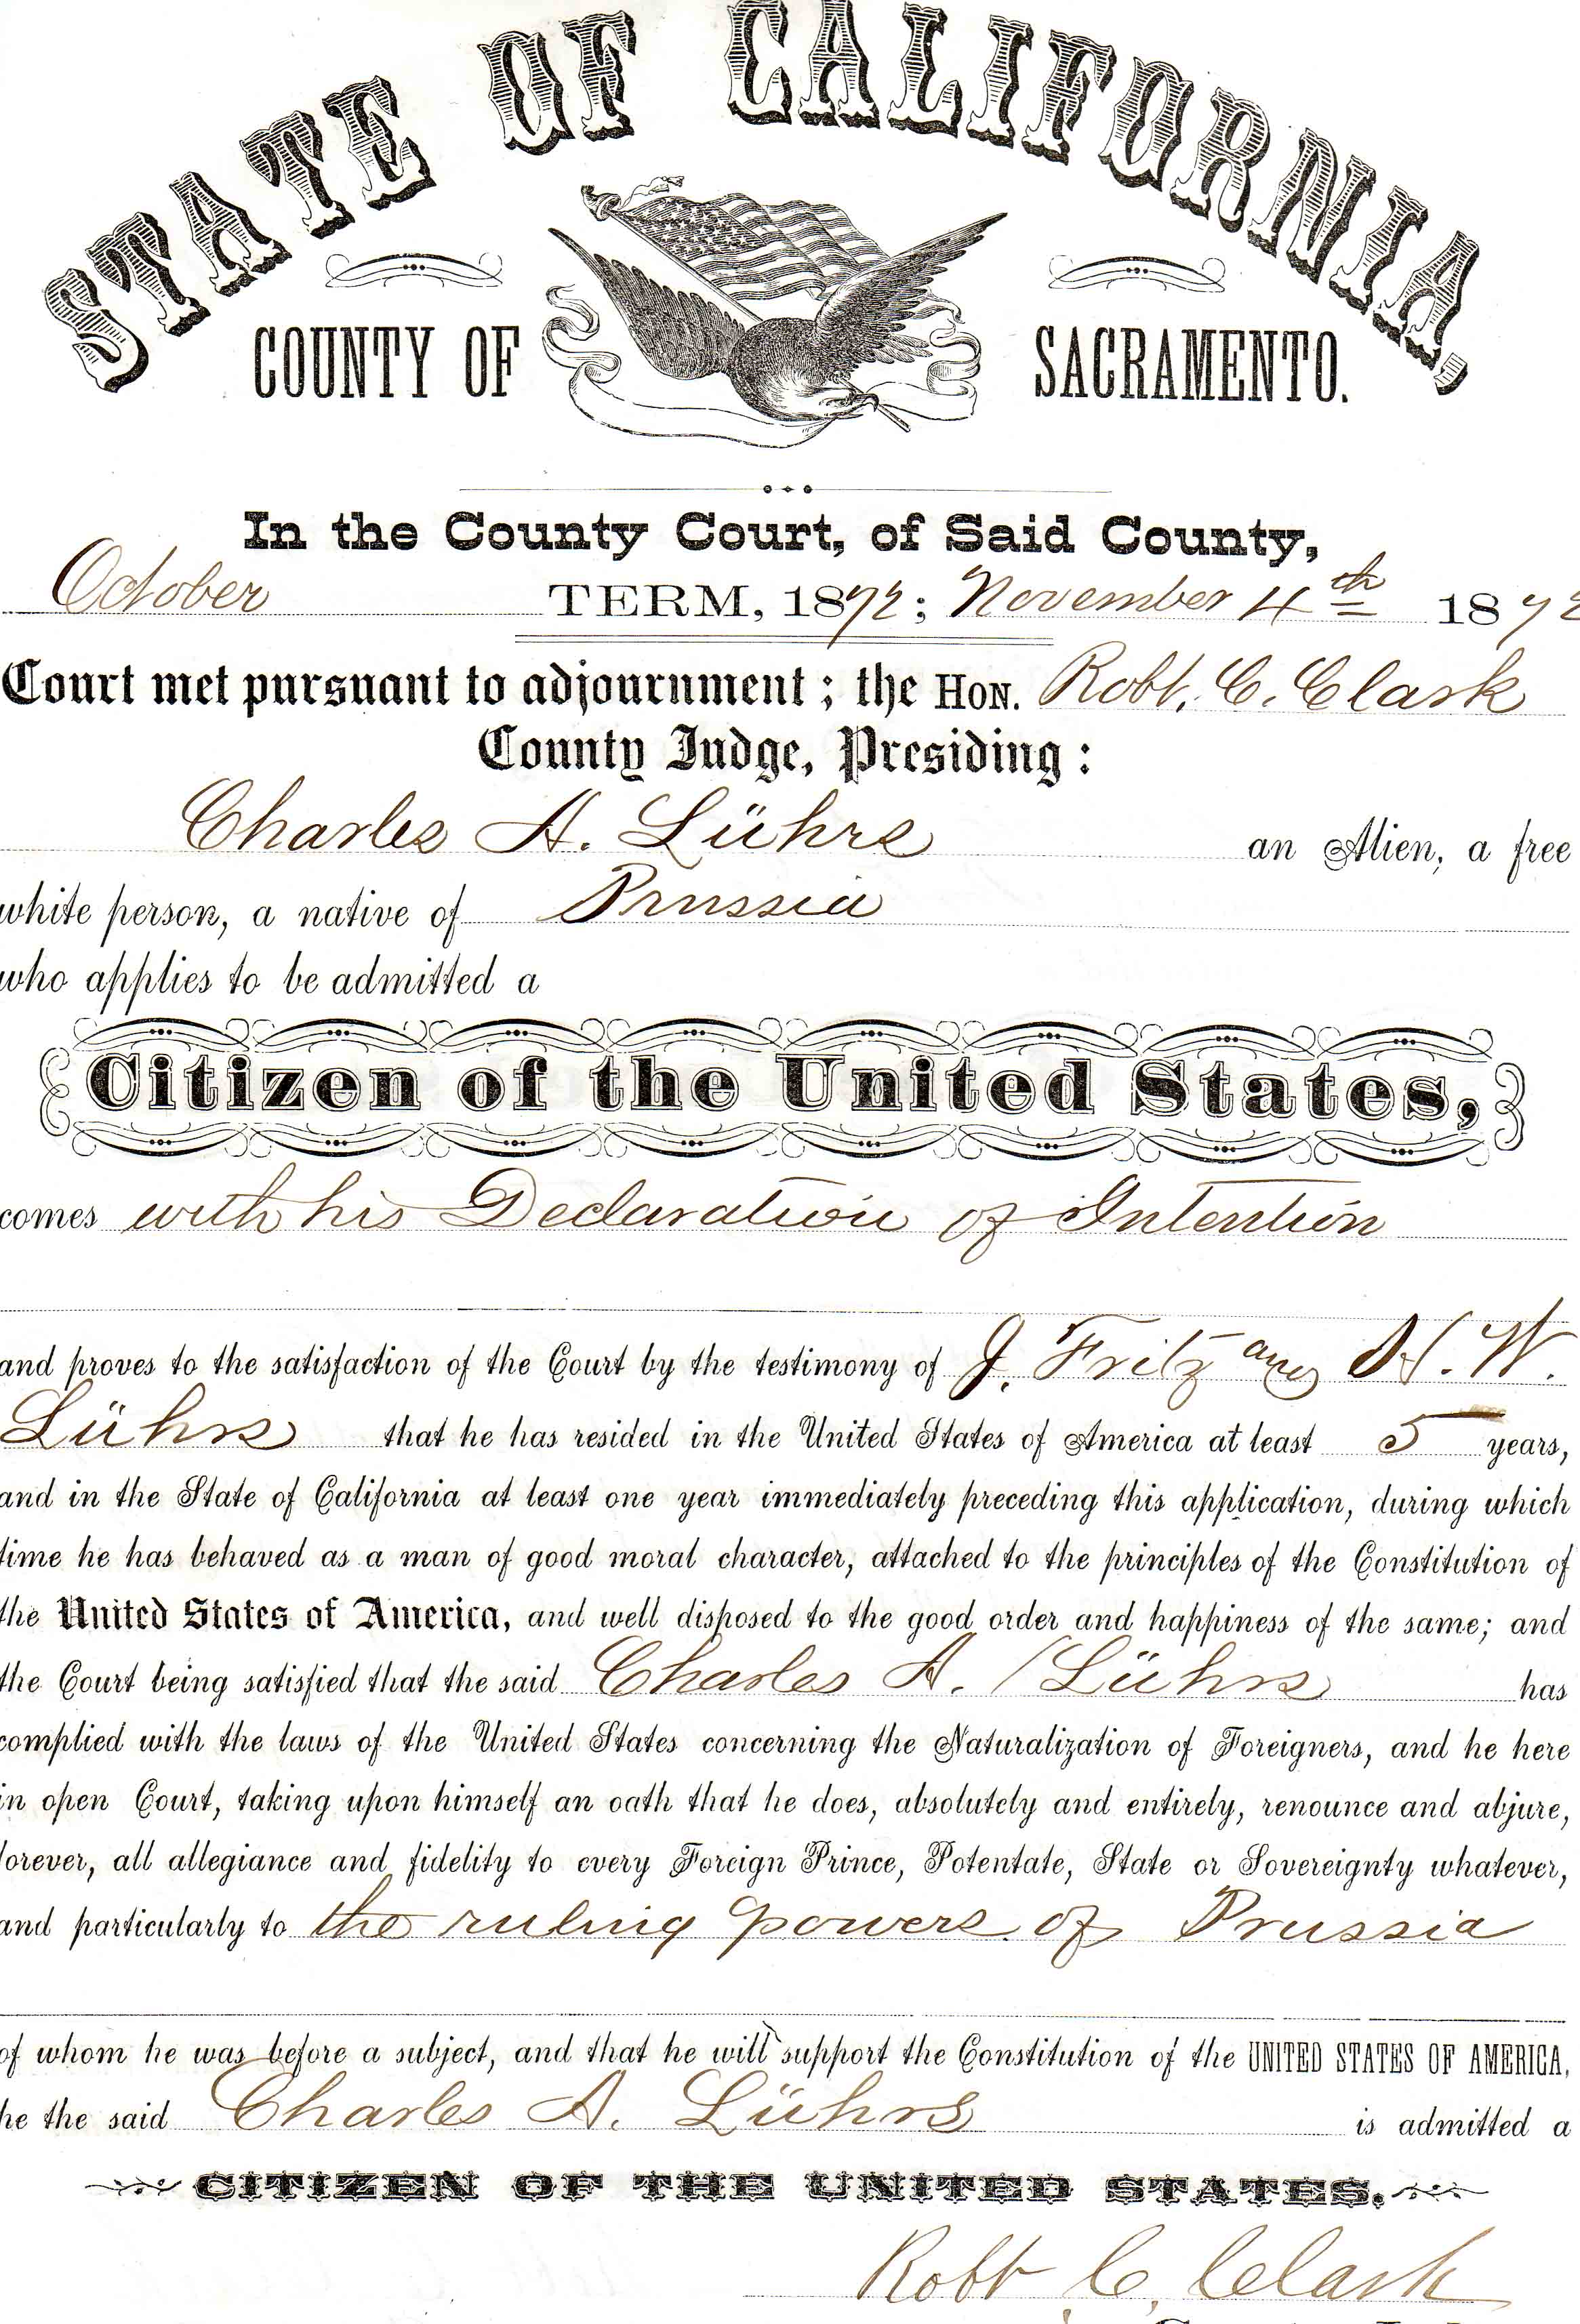 STATE OF CALIFORNIA,
COUNTY OF SACRAMENTO.
In the County Court, of Said County,
October TERM, 1872; November 4th 1872
Court met pursuant to adjournment; the HON. Robt. C. Clark
County Judge, Presiding:
Charles A. Lührs an Alien, a free
white person, a native of Prussia
who applies to be admitted a
Citizen of the United States,
comes with his Declaration of Intention
and proves to the satisfaction of the Court by the testimony of J. Fritz and H. W.
Lührs that he has resided in the United States of America at least 5 years,
and in the State of California at least one year immediately preceding this application, during which
time he has behaved as a man of good moral character, attached to the principles of the Constitution of
the United States of America, and well disposed to the good order and happiness of the same; and
the Court being satisfied that the said Charles A. Lührs has
complied with the laws of the United States concerning the Naturalization of Foreigners, and he here
in open Court, taking upon himself an oath that he does, absolutely and entirely, renounce and abjure,
forever, all allegiance and fidelity to every Foreign Prince, Potentate, State or Sovereignty whatever,
and particularly to the ruling powers of Prussia
of whom he was before a subject, and that he will support the Constitution of the UNITED STATES OF AMERICA,
he the said Charles A. Lührs is admitted a
CITIZEN OF THE UNITED STATES.
Robt C. Clark